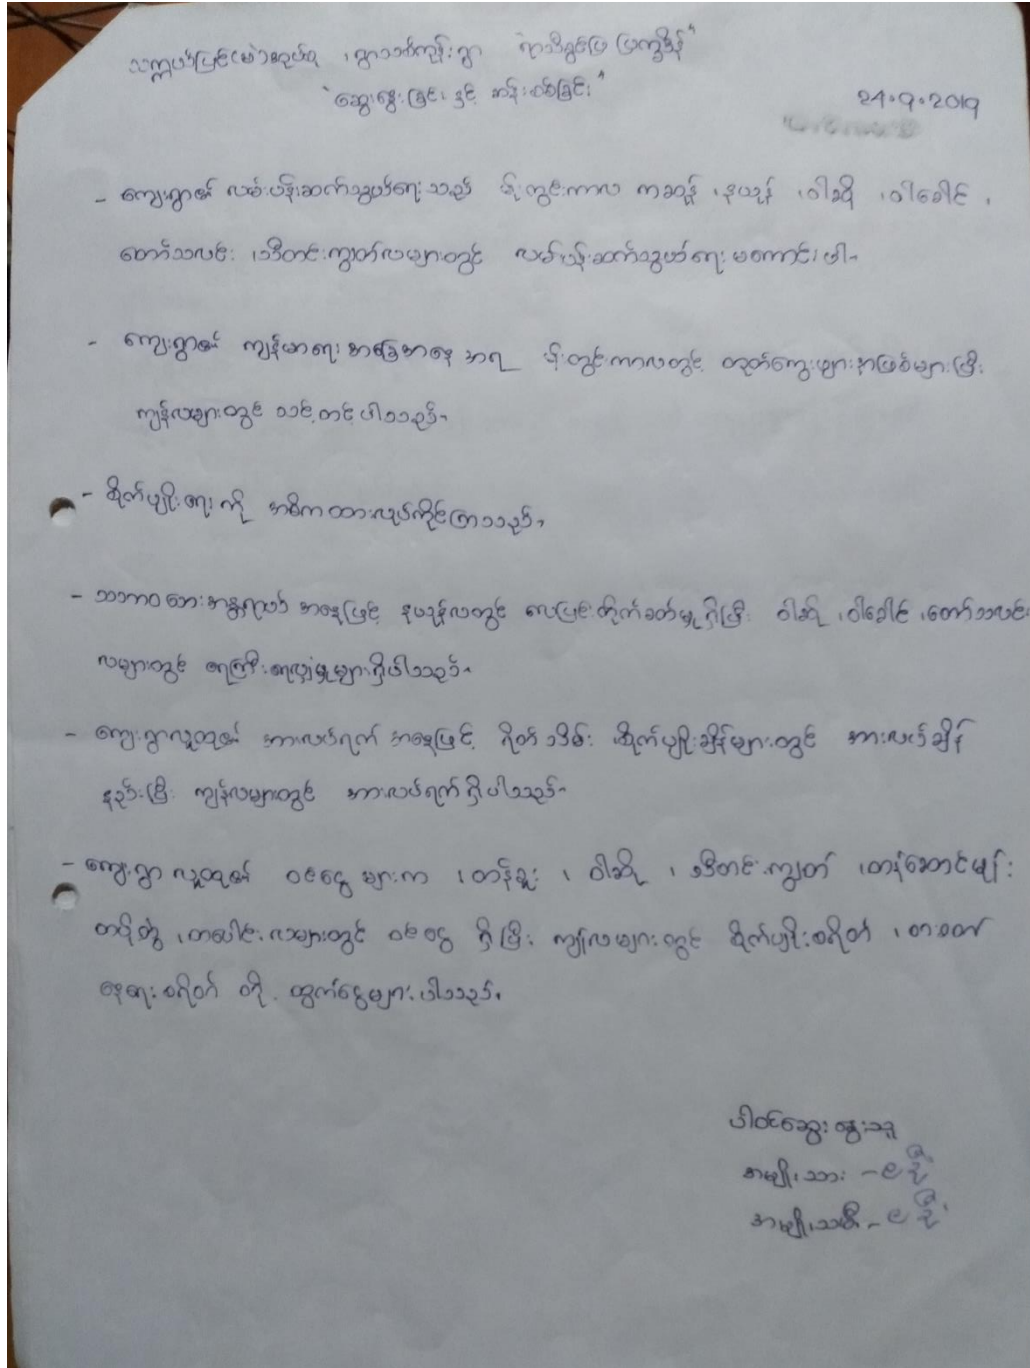 သက္ကယ်ပြင်(မ)အုပ်စု ၊ ရွာသစ်ကုန်းရွာ "ရာသီခွင်ပြ ပြက္ခဒိန်"
"ဆွေးနွေးခြင်း နှင့် ဆန်းစစ်ခြင်း"
24.9.2019
- ကျေးရွာ၏ လမ်းပန်းဆက်သွယ်ရေး သည် မိုးတွင်းကာလ ကဆုန် ၊ နယုန် ၊ ဝါဆို ၊ ဝါခေါင် ၊
တော်သလင်း ၊ သီတင်းကျွတ်လများတွင် လမ်းပန်းဆက်သွယ်ရေး မကောင်းပါ။
- ကျေးရွာ၏ ကျန်းမာရေး အခြေအနေ အရ မိုးတွင်းကာလတွင် တုတ်ကွေးဖျားနာဖြစ်များပြီး
ကျန်လများတွင် သင့်တင့်ပါသည်။
- စိုက်ပျိုးရေး ကို အဓိကထားလုပ်ကိုင်ကြသည်။
- သဘာဝဘေးအန္တရာယ် အနေဖြင့် နယုန်လတွင် လေပြင်းတိုက်ခတ်မှု ရှိပြီး ဝါဆို ၊ ဝါခေါင် ၊ တော်သလင်း
လများတွင် ရေကြီးရေလျှံမှုများရှိပါသည်။
- ကျေးရွာလူထု၏ အားလပ်ရက် အနေဖြင့် ရိတ်သိမ်း စိုက်ပျိုးချိန်များတွင် အားလပ်ချိန်
နည်းပြီး ကျန်လများတွင် အားလပ်ရက် ရှိပါသည်။
- ကျေးရွာ လူထု၏ ဝင်ငွေ များက ၊ တန်ခူး ၊ ဝါဆို ၊ သီတင်းကျွတ် ၊ တန်ဆောင်မုန်း
တပို့တွဲ ၊ တပေါင်း လများတွင် ဝင်ငွေ ရှိပြီး ကျန်လများတွင် စိုက်ပျိုးစရိတ် ၊ စားဝတ်
နေရေး စရိတ် တို့ ထွက်ငွေများပါသည်။
ပါဝင်ဆွေးနွေးသူ
အမျိုးသား -
အမျိုးသမီး -